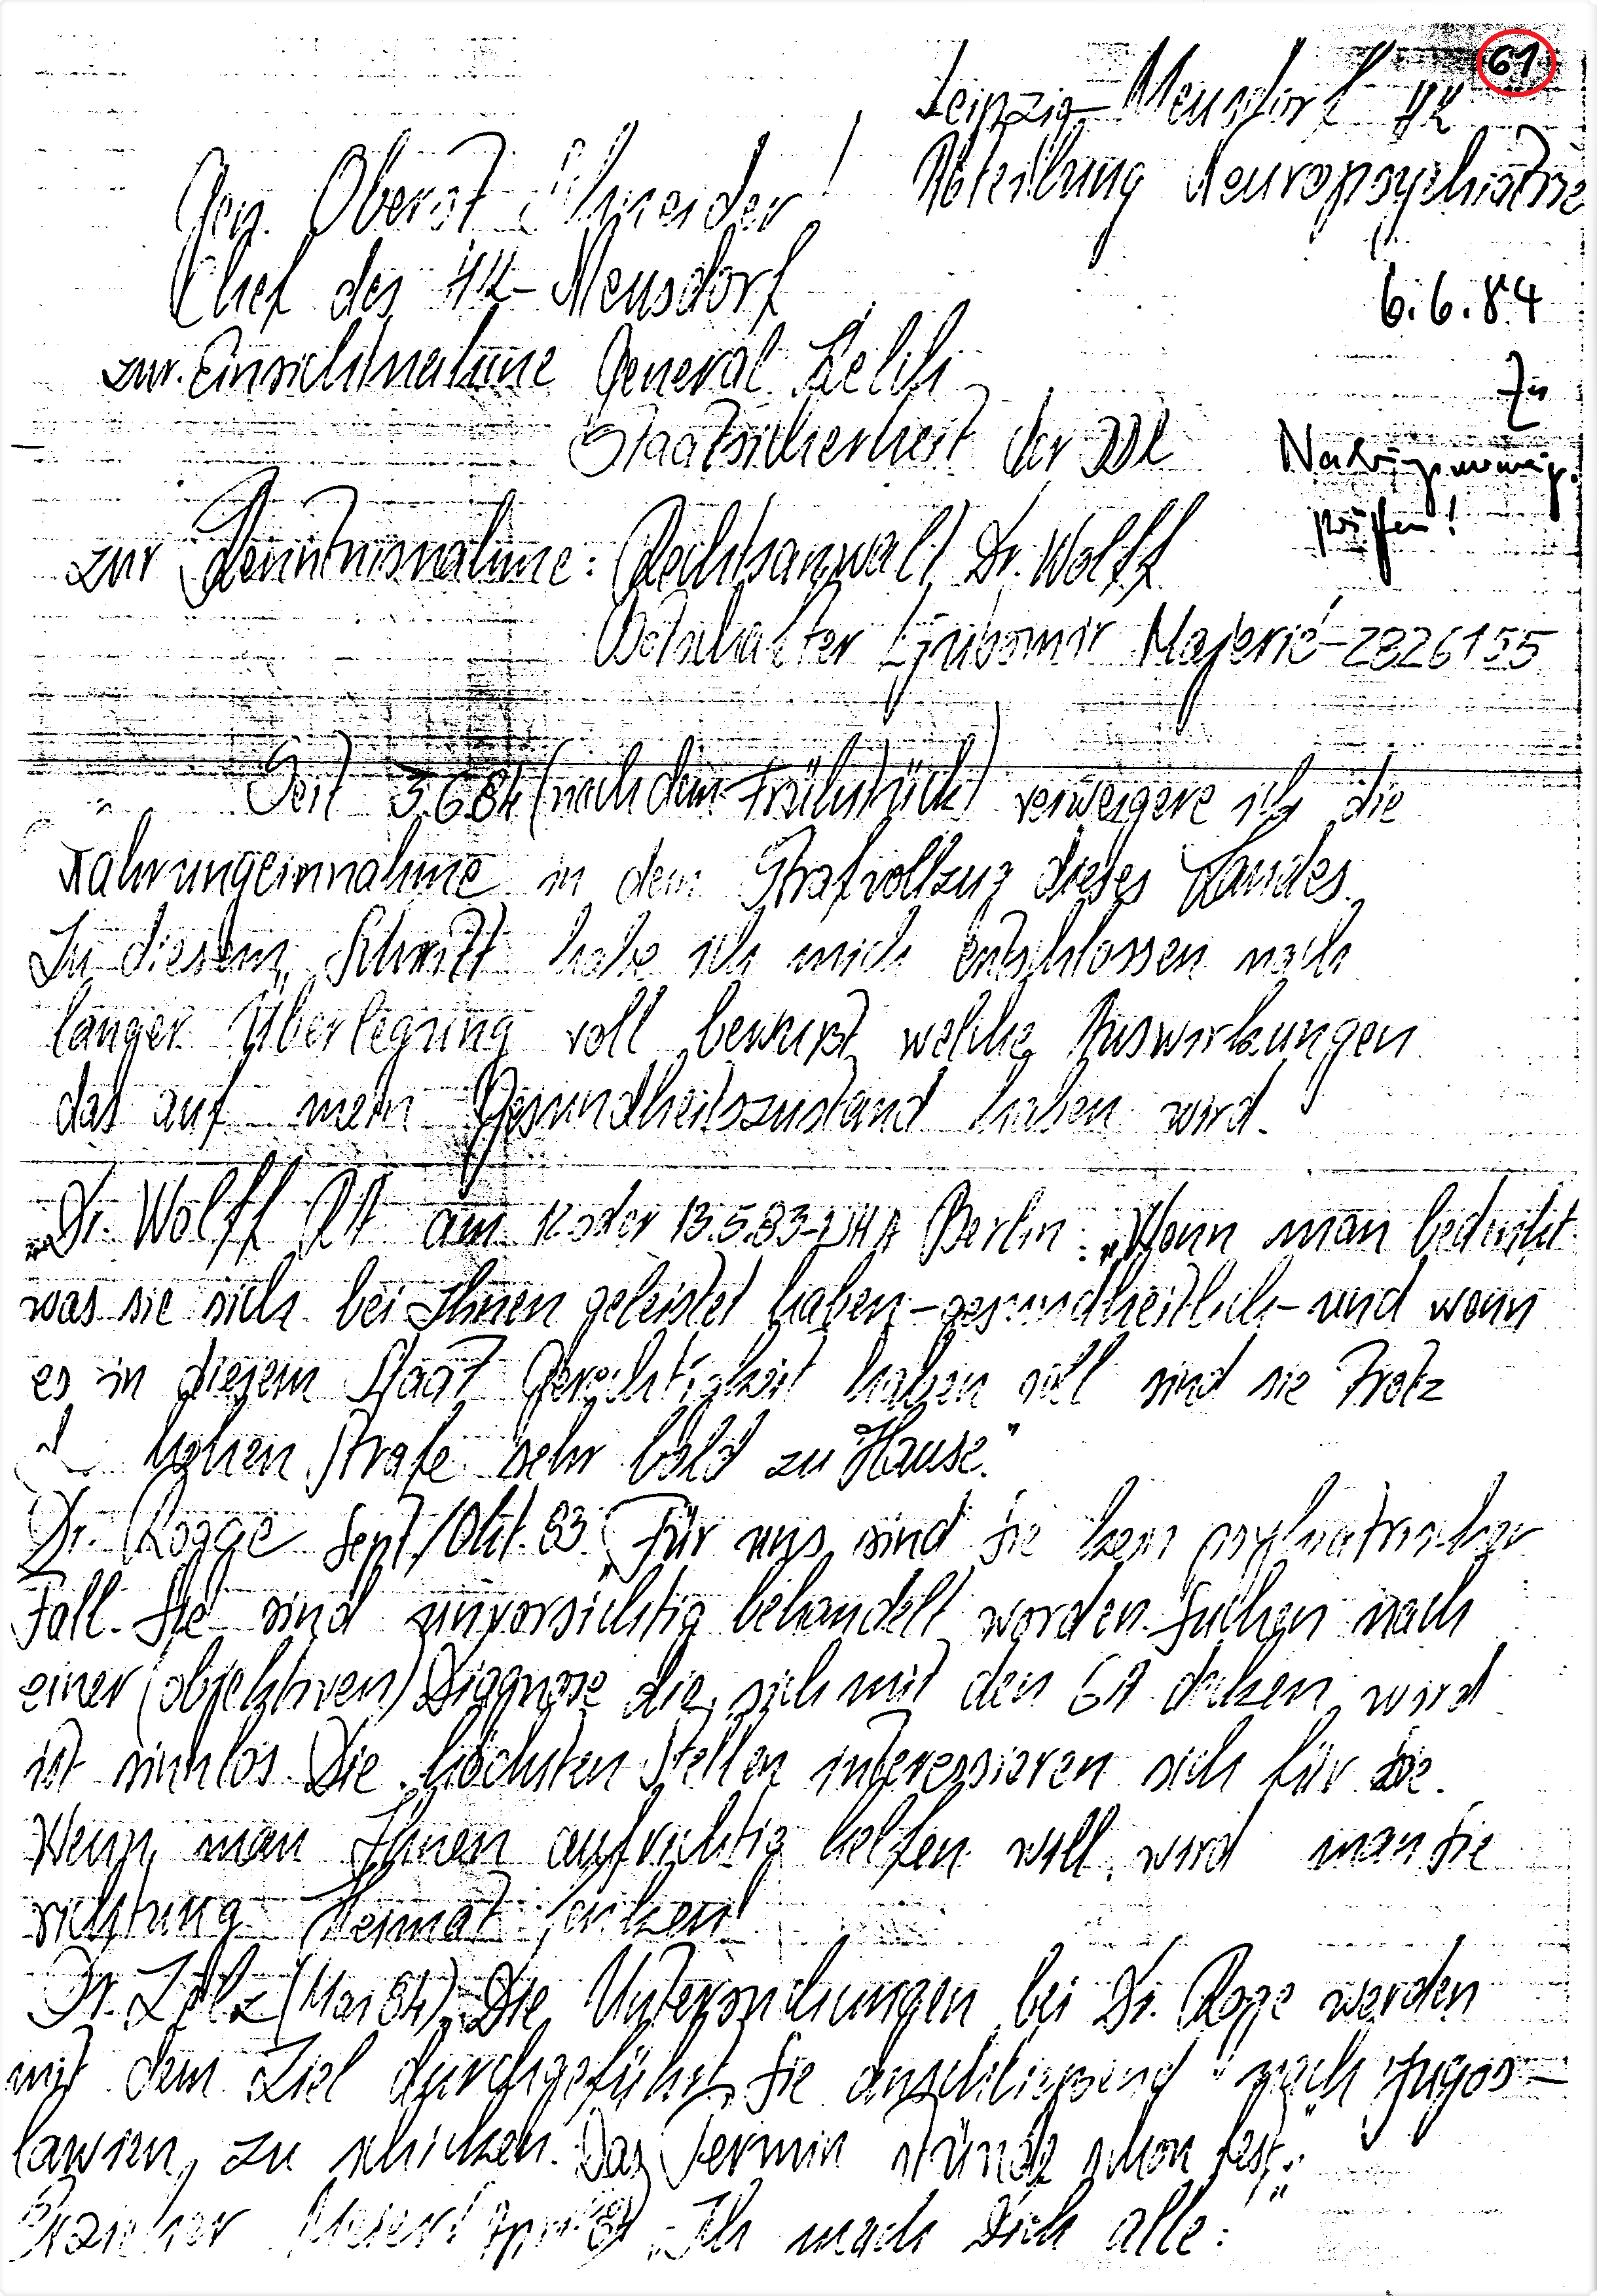 61
Leipzig-Meusdorf HK
Abteilung Neuropsychiatrie
6.6.84
Gen. Oberst Schneider!
Chef des HK-Meusdorf
zur Einsichtnahme General
Staatssicherheit der DDR
Zu
prüfen!
zur Kenntnisnahme: Rechtsanwalt Dr. Wolff
Botschafter Ljubomir Majerić-2826155
Seit 3.6.84 (nach dem Frühstück) verweigere ich die
Nahrungeinnahme in dem Strafvollzug dieses Landes.
Zu diesem Schritt habe ich mich entschlossen nach
langer Überlegung voll bewußt welche Auswirkungen
das auf mein Gesundheitszustand haben wird.
Dr. Wolff RA am 12 oder 13.5.83-UHA Berlin: „Wenn man bedenkt
was sie sich bei Ihnen geleistet haben-gesundheitlich-und wenn
es in diesem Staat Gerechtigkeit haben soll sind sie Trotz
hohen Strafe sehr bald zu Hause."
Dr. Rogge Sept./Okt. 83 „Für uns sind Sie kein psychiatrischer
Fall. Sie sind unvorsichtig behandelt worden. Suchen nach
einer (objektiven) Diagnose die sich mit den GA decken wird
ist sinnlos. Die höchsten Stellen interessieren sich für Sie.
Wenn man Ihnen aufrichtig helfen will, wird man Sie
richtung Heimat schicken"
Dr. Zelz (Mai 84) „Die Untersuchungen bei Dr. Rogge werden
mit dem Ziel durchgeführt, Sie anschließend nach Jugos-
lawien, zu schicken. Das Termin stünde schon fest."
Erzieher April 84 „Ich mach Dich alle!"